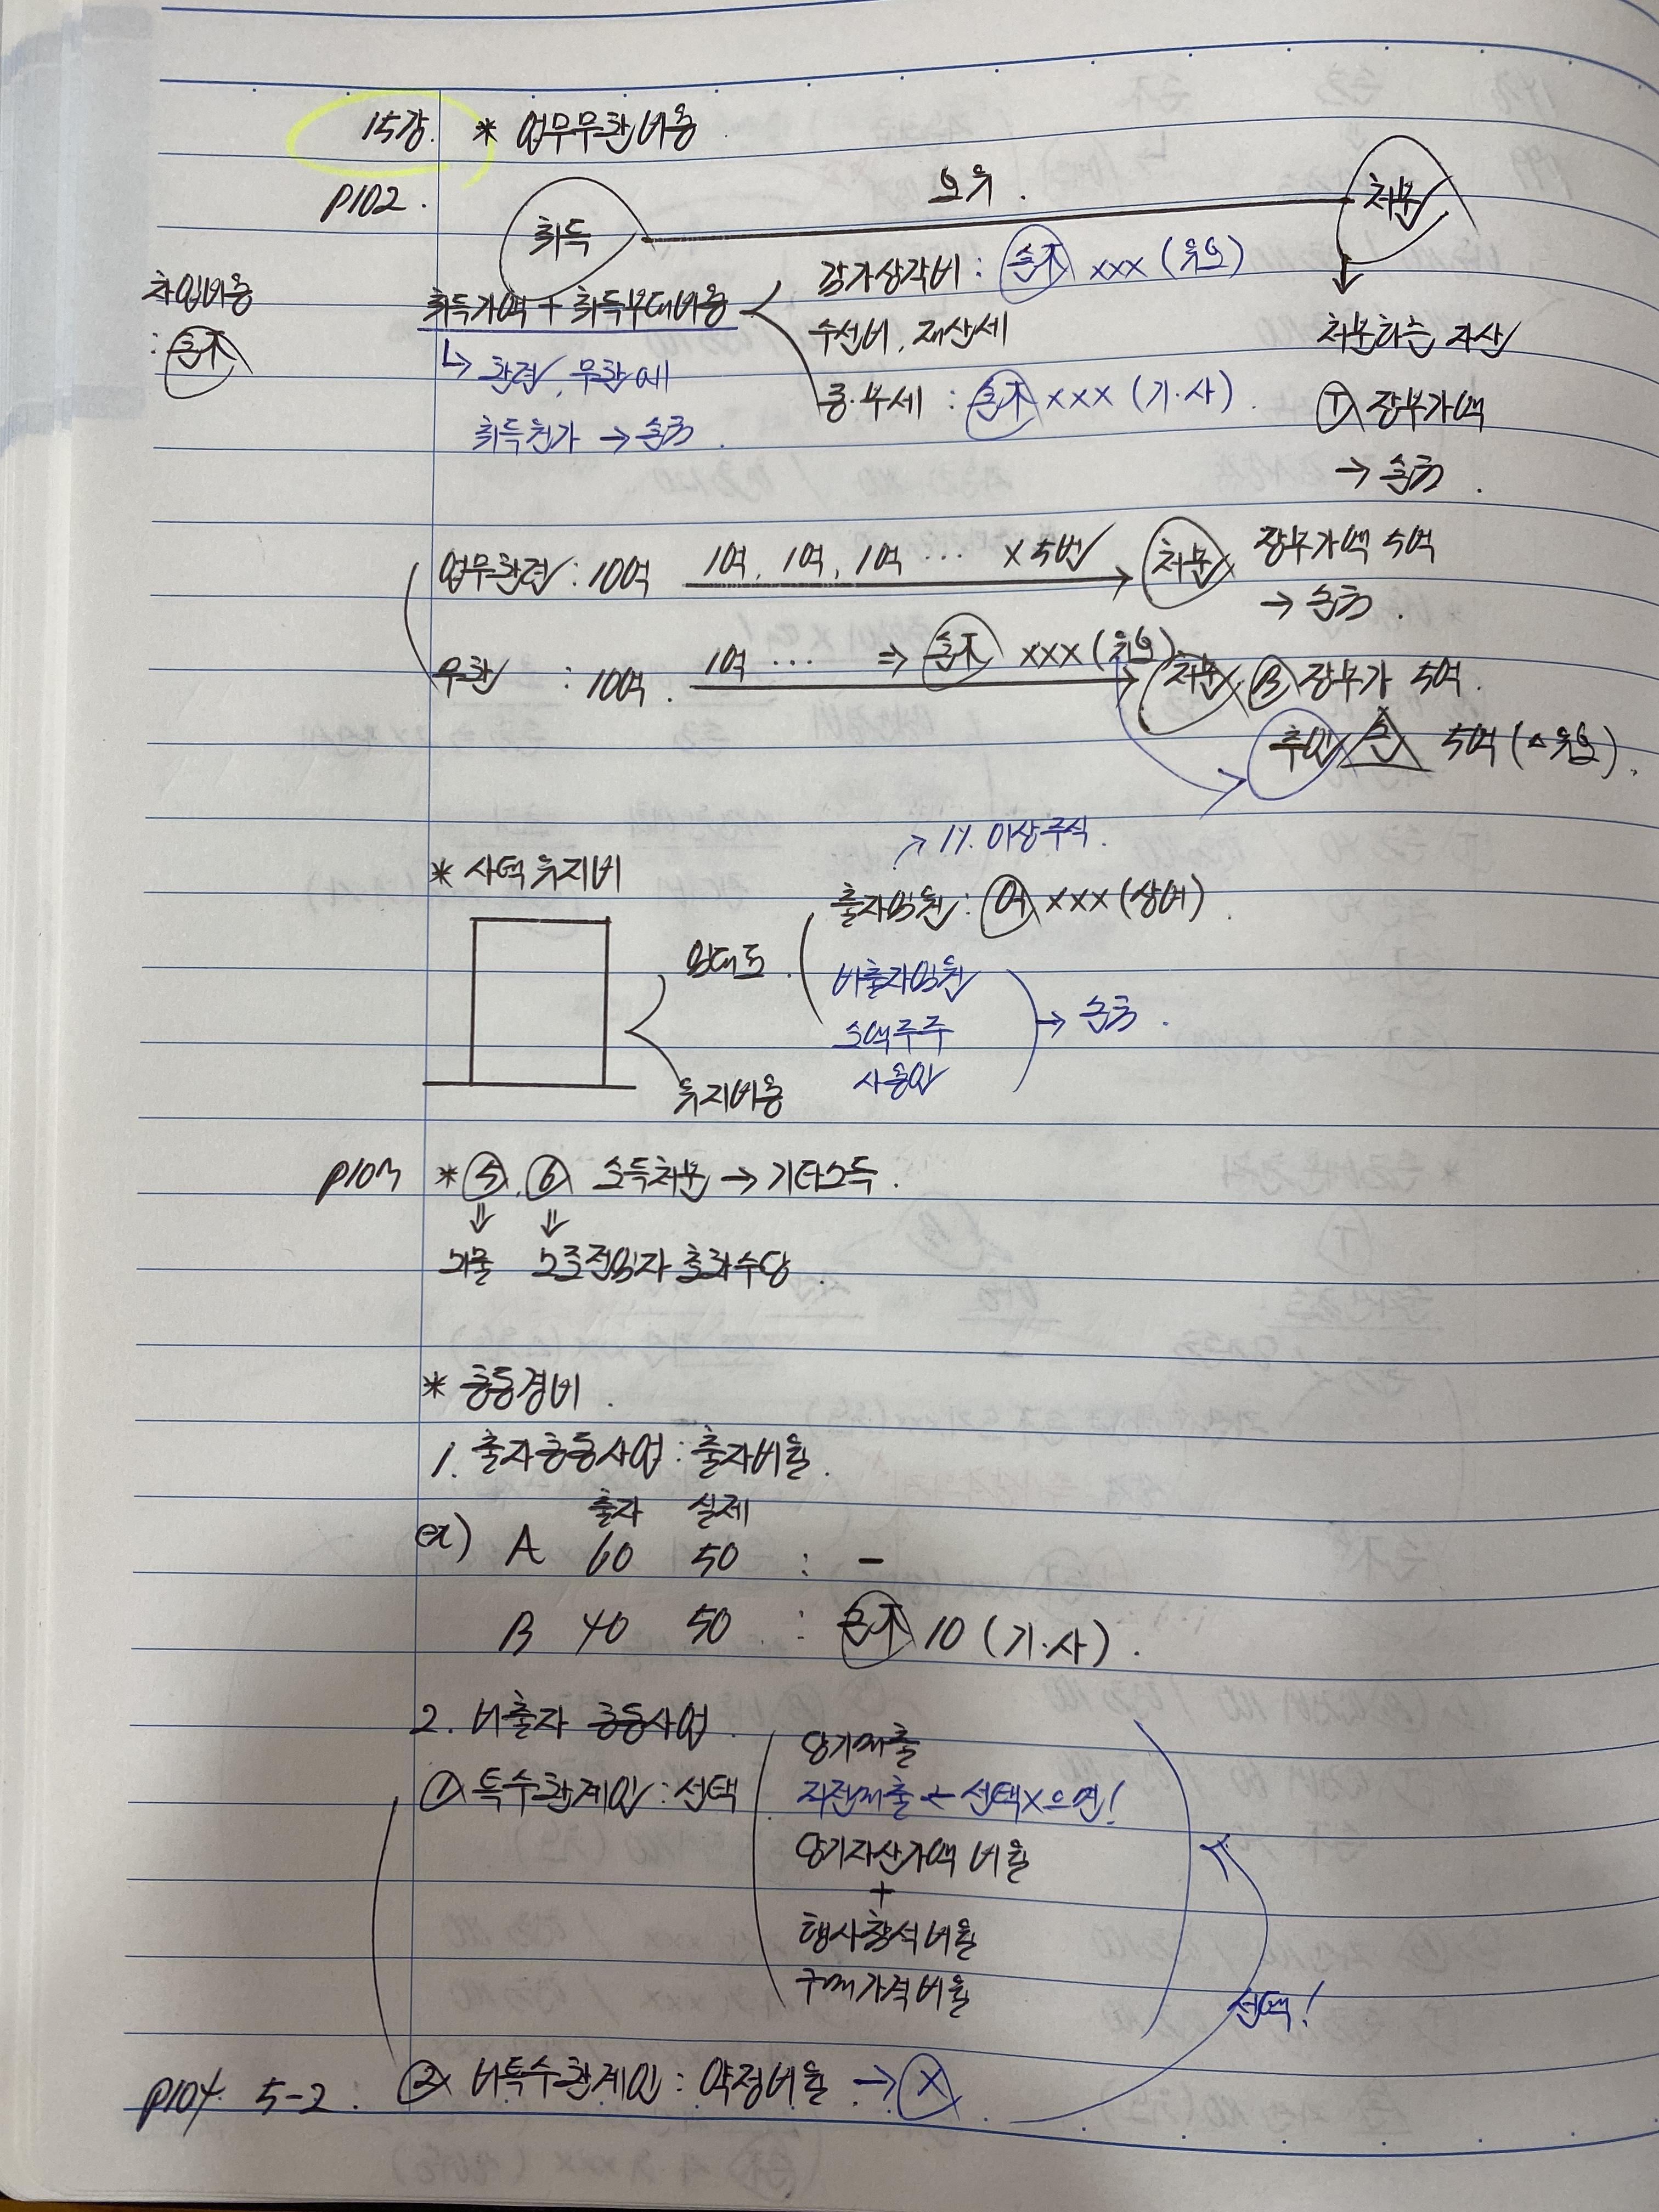 15강. * 업무무관비용
p102.
취득 보유. 처분
차입비용 : 손不
취득가액 + 취득부대비용
↳ 관련, 무관 에
취득원가 → 손금.
감가상각비 : 손不 xxx (유보)
수선비, 재산세
종·부세 : 손不 xxx (기·사).
↓
처분하는 자산
Ⓣ 장부가액
→ 손금.
업무관련 : 10억 1억, 1억, 1억 ... x 5번 처분 장부가액 5억
→ 손금.
무관 : 10억. 1억 ... ⇒ 손不 xxx (유보) 처분 Ⓑ 장부가 5억.
추인 손 5억 (△유보).
* 사택유지비
→ 1% 이상 주식.
임대료. 출자임원 : 여 xxx (상여).
비출자임원
소액주주 → 손금.
사용인
유지비용
p103 * ⑤, ⑥ 소득처분 → 기타소득.
⇓ ⇓
뇌물 노조전임자 급여수당.
* 공동경비.
1. 출자공동사업 : 출자비율.
출자 실제
ex) A 60 50 : -
B 40 50 : 손不 10 (기·사).
2. 비출자 공동사업.
① 특수관계인 : 선택
당기매출
직전매출 ← 선택x으면!
당기자산가액 비율
+
행사참석비율
구매가격비율
선택!
p104. 5-2. ② 비특수관계인 : 약정비율 → Ⓧ.